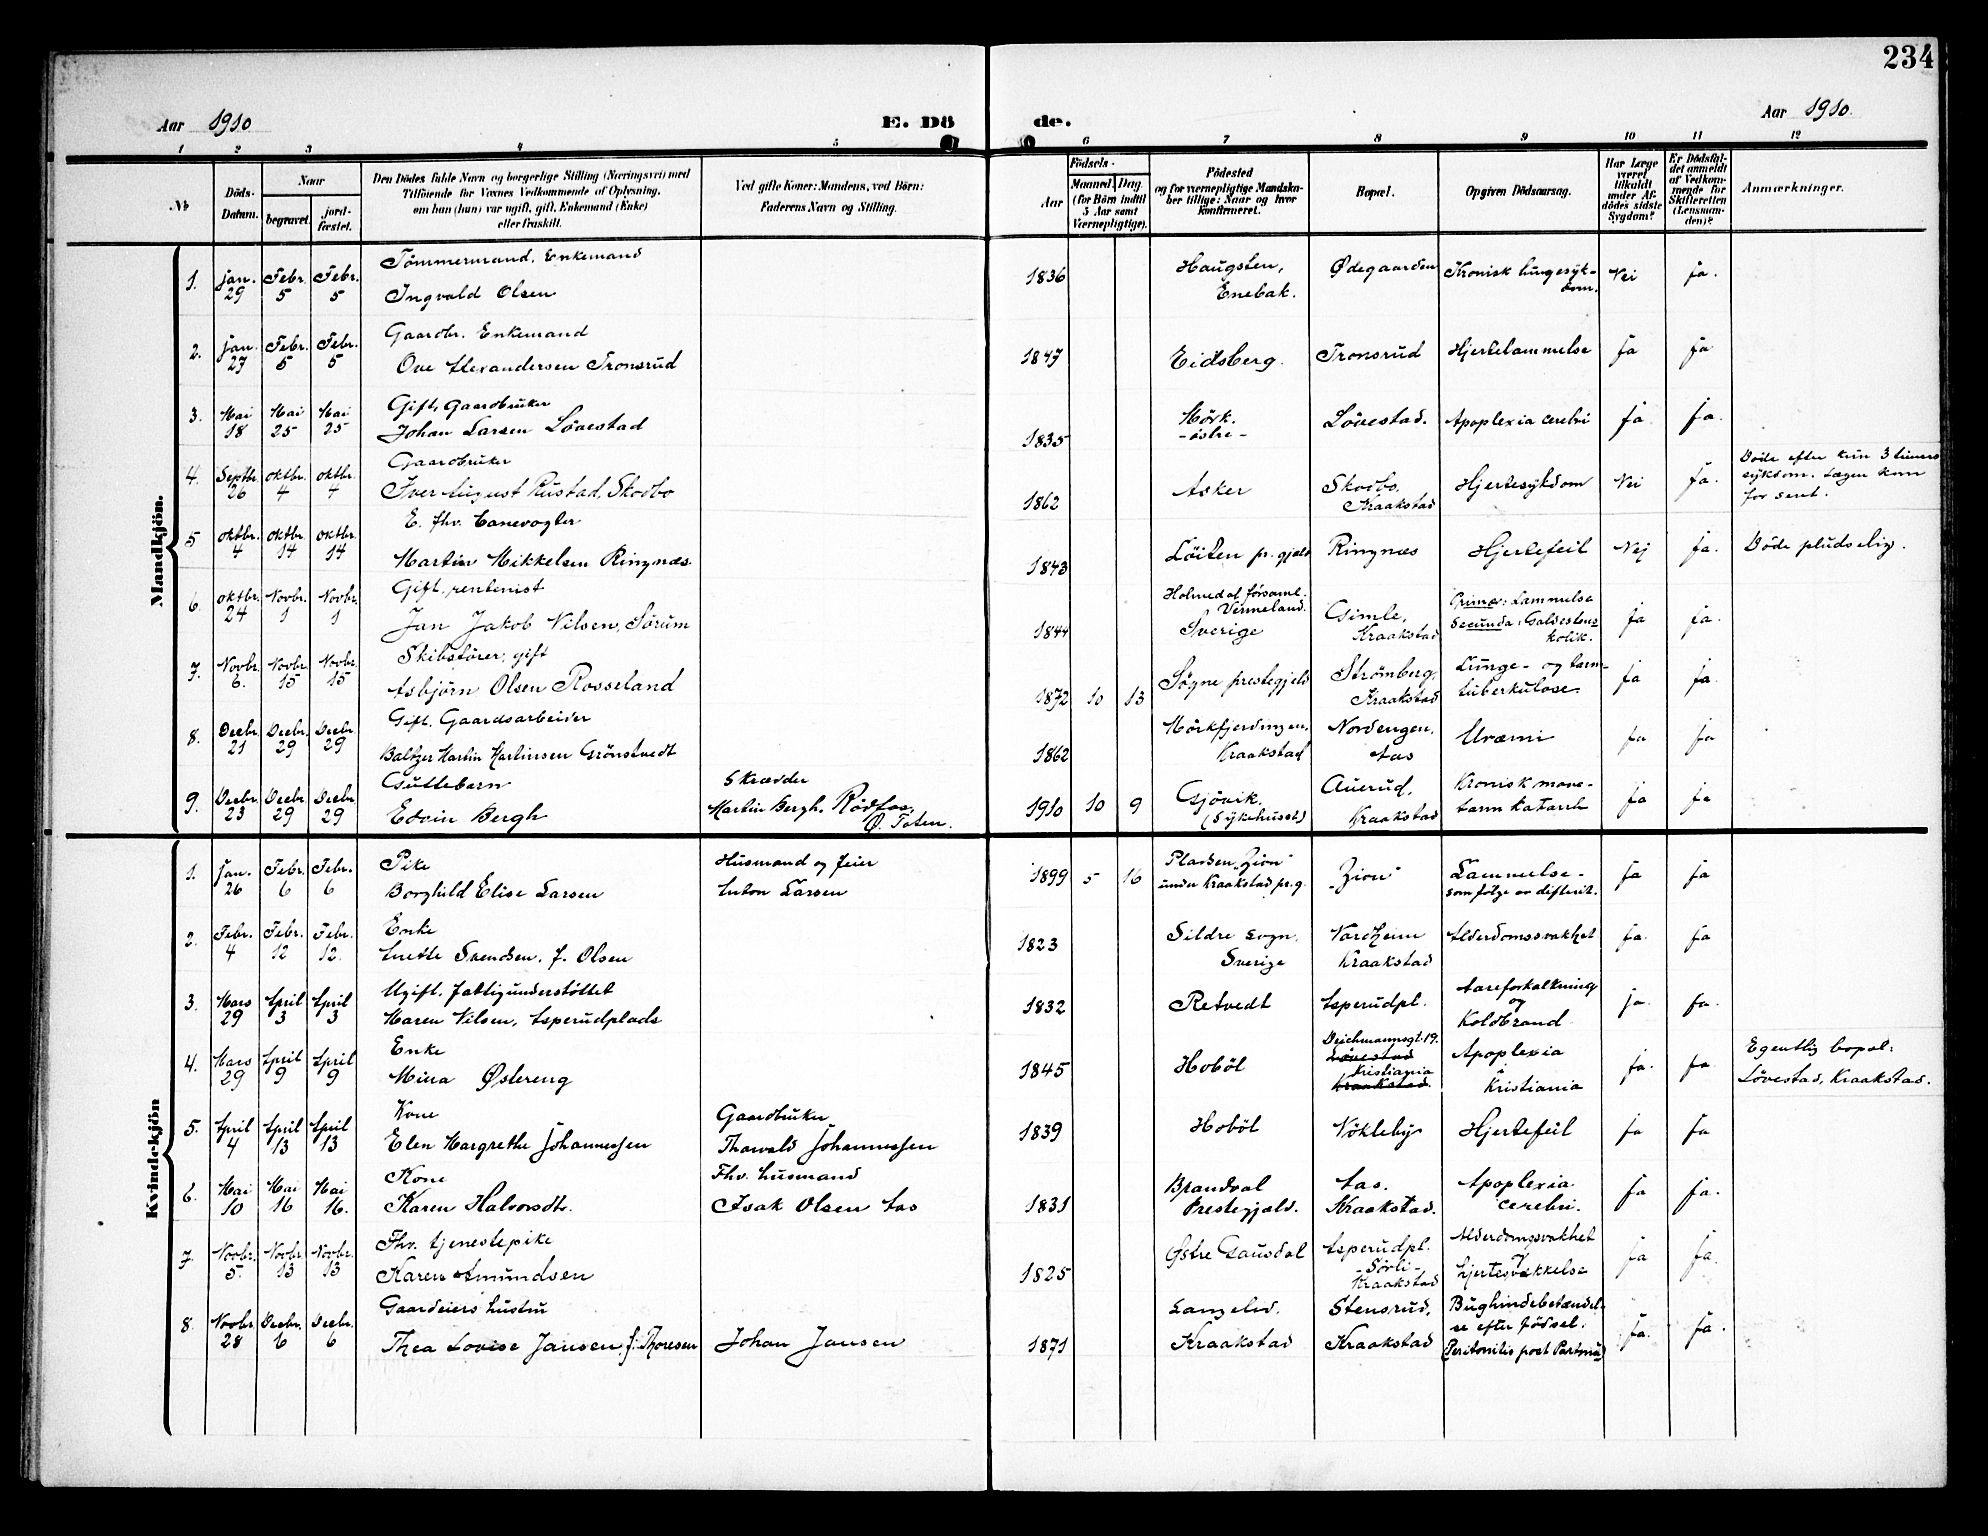 234
Aar 1910
E. Dö
de.
Aar 1910.
1 2 3 4 5 6 7 8 9 10 11 12
No
Döds-Datum.
Naar
begravet.
jord-fæstet.
Den Dödes fulde Navn og borgerlige Stilling (Næringsvei) med
Tilföiende for Voxnes Vedkommende af Oplysning,
om han (hun) var ugift, gift, Enkemand (Enke)
eller fraskilt.
Ved gifte Koner: Mandens, ved Börn:
Faderens Navn og Stilling.
Födsels-
Aar
Maaned. Dag.
(for Börn indtil
5 Aar samt
Værnepligtige).
Födested
og for værnepligtige Mandska-
ber tillige: Naar og hvor
konfirmeret.
Bopæl.
Opgiven Dödsaarsag.
Har Læge
været
tilkaldt
under Af-
dödes sidste
Sygdom?
Er Dödsfal-
det anmeldt
af Vedkom-
mende for
Skifteretten
(Lensman-
den)?
Anmærkninger.
Mandkjön.
1. Jan. 29 Febr. 5 Febr. 5 Tömmermand, Enkemand
Ingvald Olsen 1836 Haugsten, Enebak. Ødegaarden Kronisk lungesyk-dom. Nei Ja.
2. Jan. 27 Febr. 5 Febr. 5 Gaardbr. Enkemand
Ove Alexandersen Tronsrud 1847 Eidsberg. Tronsrud Hjertelammelse Ja Ja
3. Mai 18 Mai 25 Mai 25 Gift, Gaardbruker
Johan Larsen Lövestad 1835 Mörk. -östre- Lövestad. Apoplexia cerebri Ja Ja.
4. Septbr. 26 Oktbr. 4 Oktbr. 4 Gaardbruker
Iver August Rustad, Skodbo 1862 Asker Skodbo, Kraakstad Hjertesykdom Nei Ja. Döde efter kun 3 timers sykdom. Lægen kom for sent.
5 Oktbr. 4 Oktbr. 14 Oktbr. 14 E. fhv. banevogter
Martin Mikkelsen Ringnæs. 1843 Löiten pr.gjeld Ringnæs Hjertefeil Nej Ja. Döde pludselig.
6. Oktbr. 24 Novbr. 1 Novbr. 1 Gift, rentenist
Jan Jakob Nilsen, Sörum 1844 Holmedal församl. Vermeland. Sverige Gimle, Kraakstad Prima: Lammelse Secunda: Galdestens kolik. Ja Ja.
7. Novbr. 6. Novbr. 15 Novbr. 15 Skibsförer, gift
Asbjörn Olsen Rosseland 1872 10 13 Sögne prestegjeld Strömberg, Kraakstad Lunge- og tarm-tuberkulose. Ja Ja.
8. Decbr. 21 Decbr. 29 Decbr. 29 Gift. Gaardsarbeider
Baltzer Martin Martinsen Grönstvedt 1862 Mörkfjerdingen, Kraakstad Nordengen, Aas Uræmi Ja Ja
9. Decbr. 23 Decbr. 29 Decbr. 29 Guttebarn
Edvin Bergh Skrædder
Martin Bergh, Rödfos, Ø. Toten. 1910 10 9 Gjövik, (Sykehuset) Auerud, Kraakstad Kronisk mave-tarm katarrh Ja Ja
Kvindekjön
1. Jan. 26 Febr. 6 Febr. 6 Pike
Borghild Elise Larsen Husmand og feier
Anton Larsen 1899 5 16 Pladsen "Zion" under Kraakstad pr.g. "Zion" Lammelse- som følge av difterit. Ja Ja
2. Febr. 4 Febr. 12 Febr. 12. Enke
Anette Svendsen, f. Olsen 1823 Sildre sogn, Sverige Vardheim Kraakstad Alderdomssvakhet Ja. Ja
3. Mars 29 April 3 April 3 Ugift. fattigunderstöttet
Maren Nilsen, Asperudplads 1832 Retvedt Asperudpl. Aareforkalkning og Koldbrand Ja. Ja.
4. Mars 29 April 9 April 9 Enke
Mina Østereng 1845 Hoböl Deichmannsgt. 19. Lövestad Kristiania Kraakstad. Apoplexia i Kristiania Ja. Ja. Egentlig bopæl: Lövestad, Kraakstad.
5. April 4 April 13 April 13 Kone
Elen Margrethe Johannessen Gaardbruker
Thorvald Johannessen 1839 Hoböl Nökleby Hjertefeil Ja Ja
6. Mai 10 Mai 16 Mai 16. Kone
Karen Halvorsdtr. Fhv. husmand
Isak Olsen Aas 1831 Brandval Prestegjæld. Aas. Kraakstad. Apoplexia cerebri. Ja Ja.
7. Novbr. 5. Novbr. 13 Novbr. 13 Fhv. tjenestepike
Karen Amundsen 1825 Østre Gausdal Asperudpl. -Sörli- Kraakstad Alderdomssvakhet og hjertesvekkelse Ja Ja.
8. Novbr. 28 Decbr. 6 Decbr. 6 Gaardeiers hustru
Thea Lovise Jansen, f. Thoresen Johan Jansen 1871 Langelid, Kraakstad Stensrud, Kraakstad Bughindebetændel-se efter födsel. (Peritonitis post Partum) Ja. Ja.